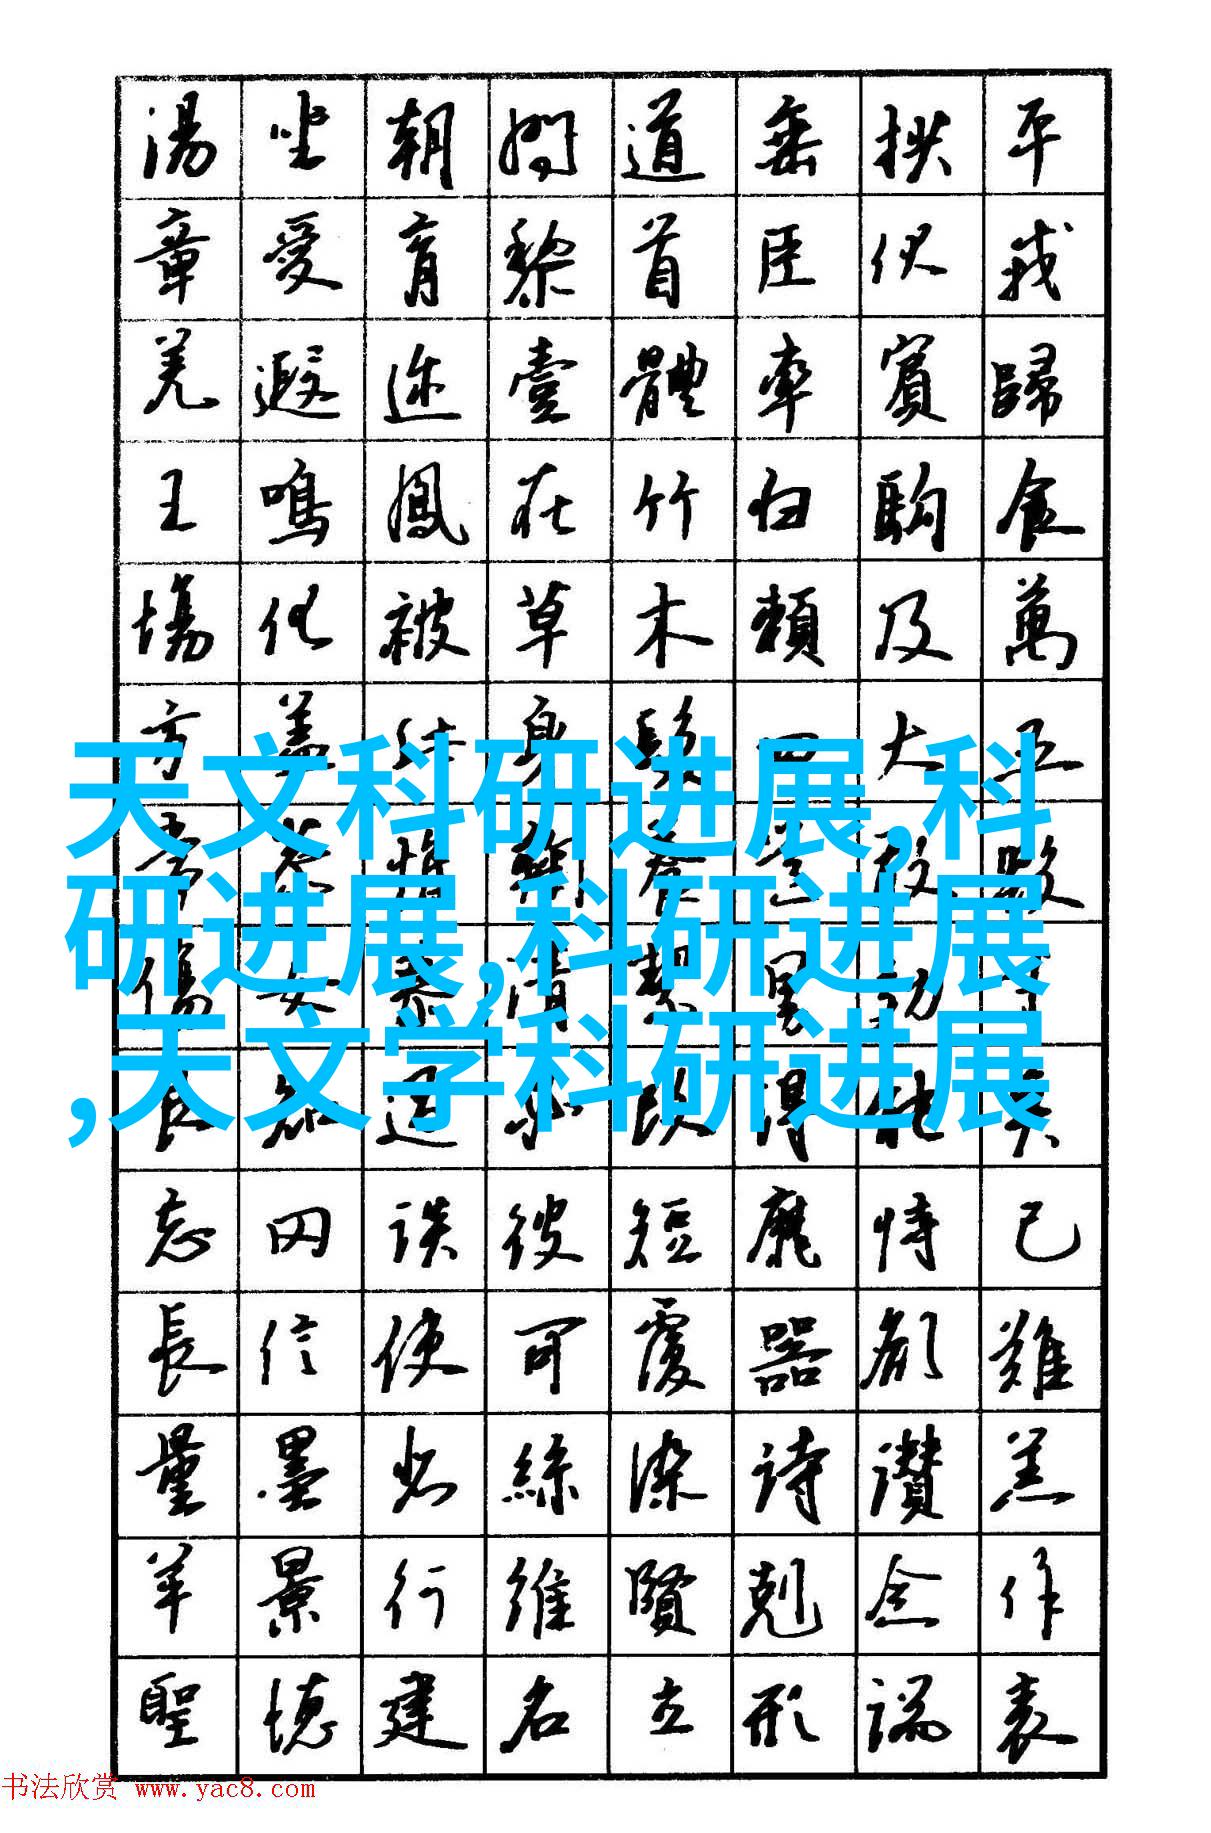 湯坐朝問道垂拱平
章愛育黎首臣伏戎
羌遐迩壹體率賓歸
王鳴鳳在竹白駒食
場化被草木賴及萬
方蓋身髮四大五
天文科研进展,科
研进展,科研进展
,天文学科研进展
傷女慕清
良知過必改得能莫
忘罔談彼短靡恃己
長信使可覆器欲難
量墨悲絲染詩讚羔
羊景行維賢剋念作
聖德建名立形端表
书法欣赏 www.yac8.com